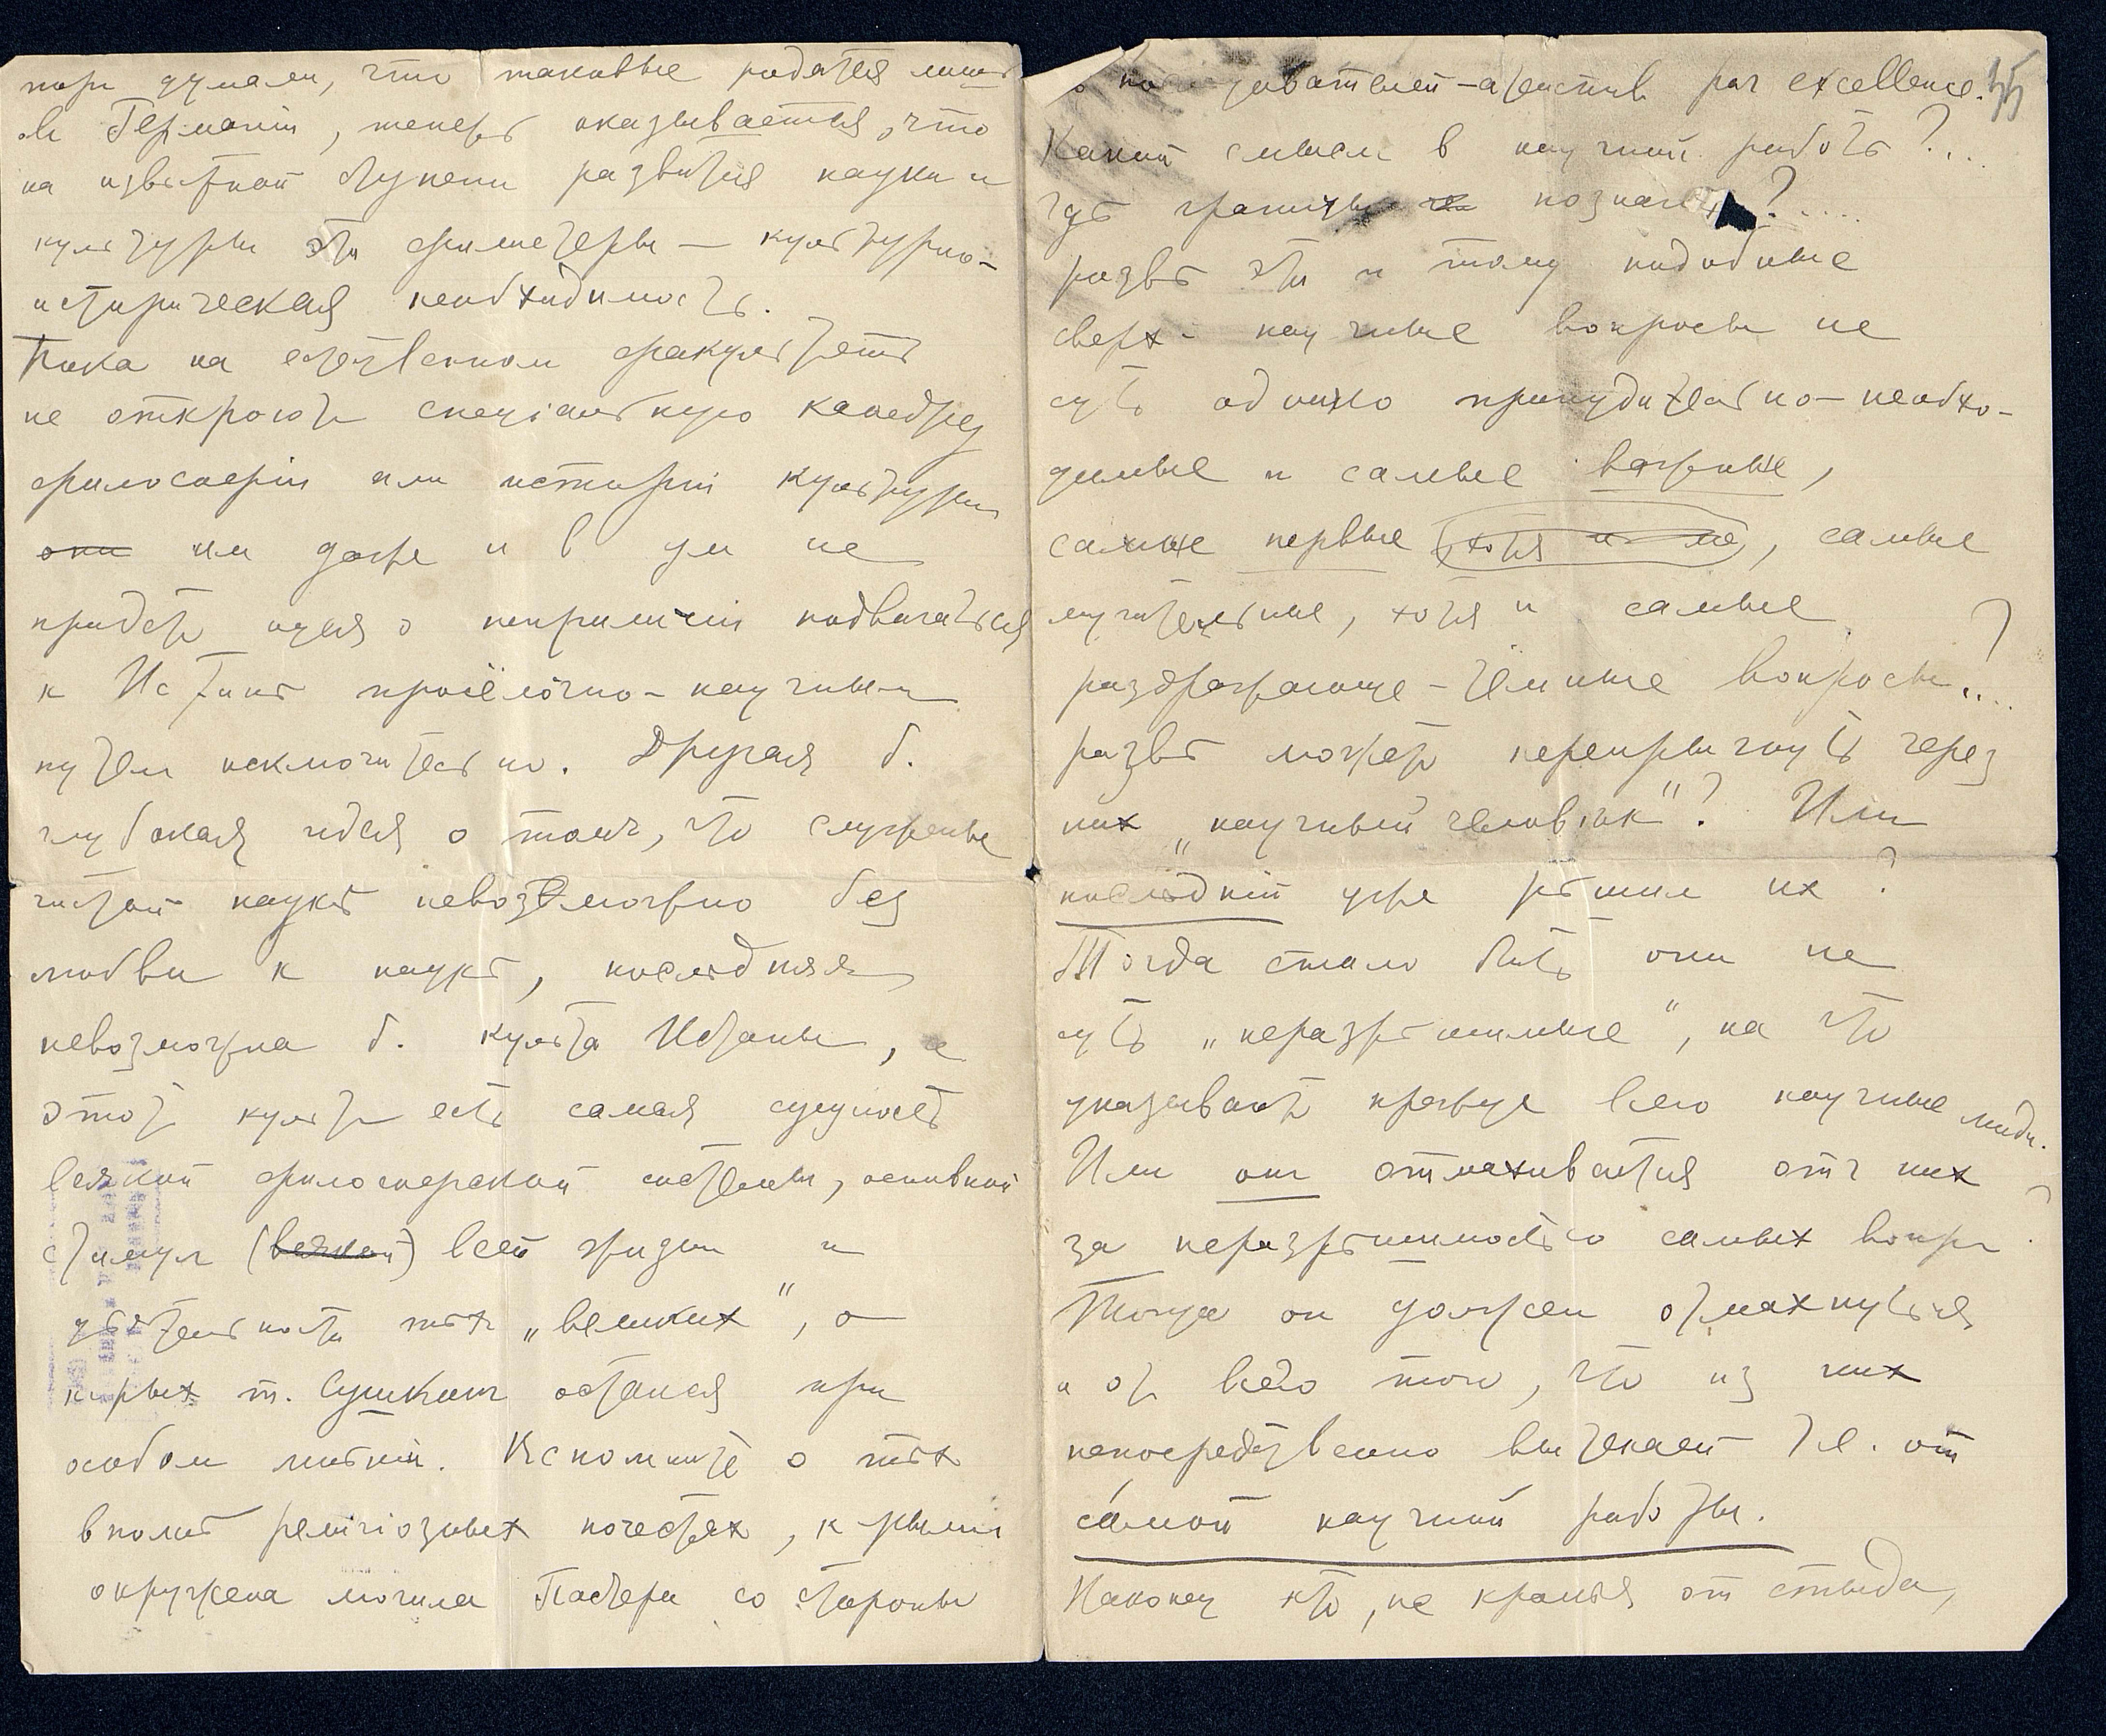 пор думали, что таковые родятся лишь
въ Германіи, теперь оказывается, что
на извѣстной ступени развитія науки и
культуры эти филистеры — культурно-
историческая необходимость.
Пока на естественном факультетѣ
не откроютъ спеціальную кафедру
философіи или исторіи культуры
они им даже и в ум не
придетъ идея о неприличіи подвигаться
к Истинѣ просёлочно-научным
путем исключительно. Другая б.
глубокая идея о томъ, что служенье
чистой наукѣ невозможно без
любви к наукѣ, последняя
невозможна б. культа Истины, а
этотъ культъ есть самая сущность
всякой философской системы, основной
стимул (всякой) всей жизни и
дѣятельности тѣхъ „великих", о
к-рых т. Сушкинъ остался при
особом мнѣніи. Вспомните о тѣх
вполнѣ религіозных почестях, к-рыми
окружена могила Пастера со стороны
55
последователей-атеистов par excellence.
Какой смысл в научной работѣ?....
гдѣ границы познанія?.....
развѣ эти и тому подобные
сверх-научные вопросы не
суть однако принудительно-необхо-
димые и самые важные,
самые первые (хотя и не), самые
мучительные, хотя и самые
раздражающе-тёмные вопросы....?
развѣ можетъ перепрыгнуть через
них „научный человѣк"? Или
последній уже рѣшил их?
Тогда стало быть они не
суть „неразрѣшимые", на что
указываютъ прежде всего научные люди.
Или он отмахивается отъ них
за неразрѣшимостью самых вопр.?
Тогда он должен отмахнуться
и от всего того, что из них
непосредственно вытекает т.е. от
са́мой научной работы.
Наконец кто, не краснѣя от стыда,